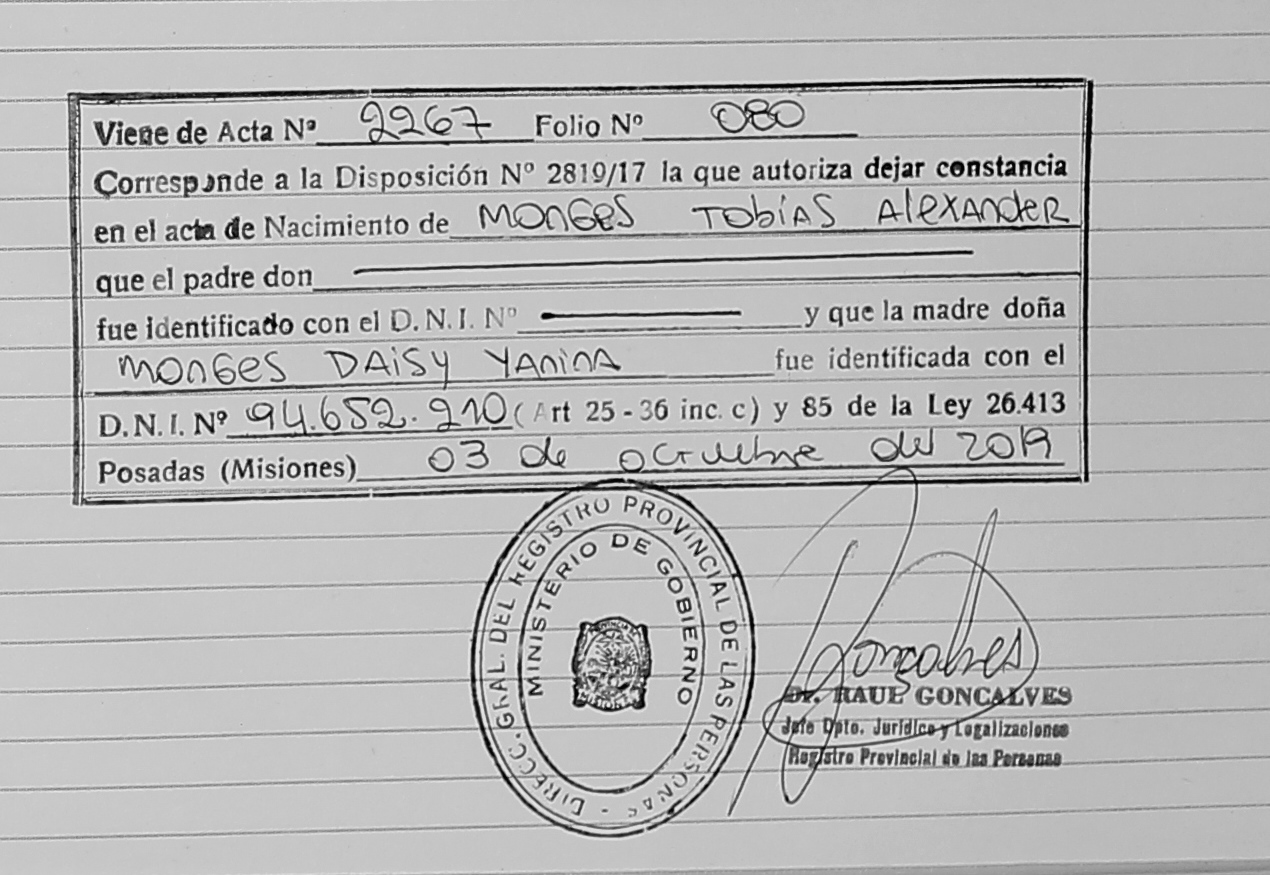 Viene de Acta Nº 2267 Folio Nº 080
Corresponde a la Disposición Nº 2819/17 la que autoriza dejar constancia
en el acta de Nacimiento de MONGES TOBÍAS AlexANdeR
que el padre don
fue identificado con el D.N.I. Nº y que la madre doña
MONGES DAISY YANINA fue identificada con el
D.N.I. Nº 94.652.210 (Art 25 - 36 inc. c) y 85 de la Ley 26.413
Posadas (Misiones) 03 de octubre del 2019
DIRECC. GRAL. DEL REGISTRO PROVINCIAL DE LAS PERSONAS -
MINISTERIO DE GOBIERNO
Gonçalves
Dr. RAUL GONCALVES
Jefe Dpto. Jurídico y Legalizaciones
Registro Provincial de las Personas